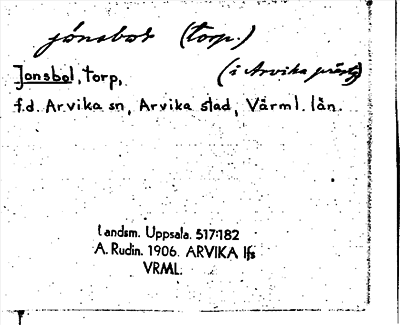 jönsbol (torp.)
Jonsbol, torp, (i Arvika prästg)
f.d. Arvika sn, Arvika stad, Värml. län.
Landsm. Uppsala. 517:182
A. Rudin. 1906. ARVIKA lfs
VRML.